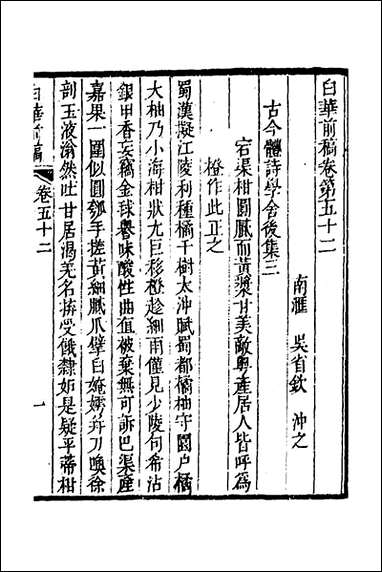 白華前稿卷第五十二
南滙 吳省欽 沖之
古今體詩學舍後集三
宕渠柑圓膩而黃漿甘美敵粵産居人皆呼爲
橙作此正之
蜀漢擬江陵利種橘千樹太沖賦蜀都橘柚守園户橘
大柚乃小海柑狀尤巨移橙趁細雨僅見少陵句希沾
銀甲香妄竊金球譽味酸性曲直被棄無可訴巴渠産
嘉果一圍似圓瓠手搓黃細膩爪擘白婉嫮幷刀喚徐
剖玉液滃然吐甘居渴羌名擠受餓隸妬是疑平蒂柑
白華前稿
卷五十二
一